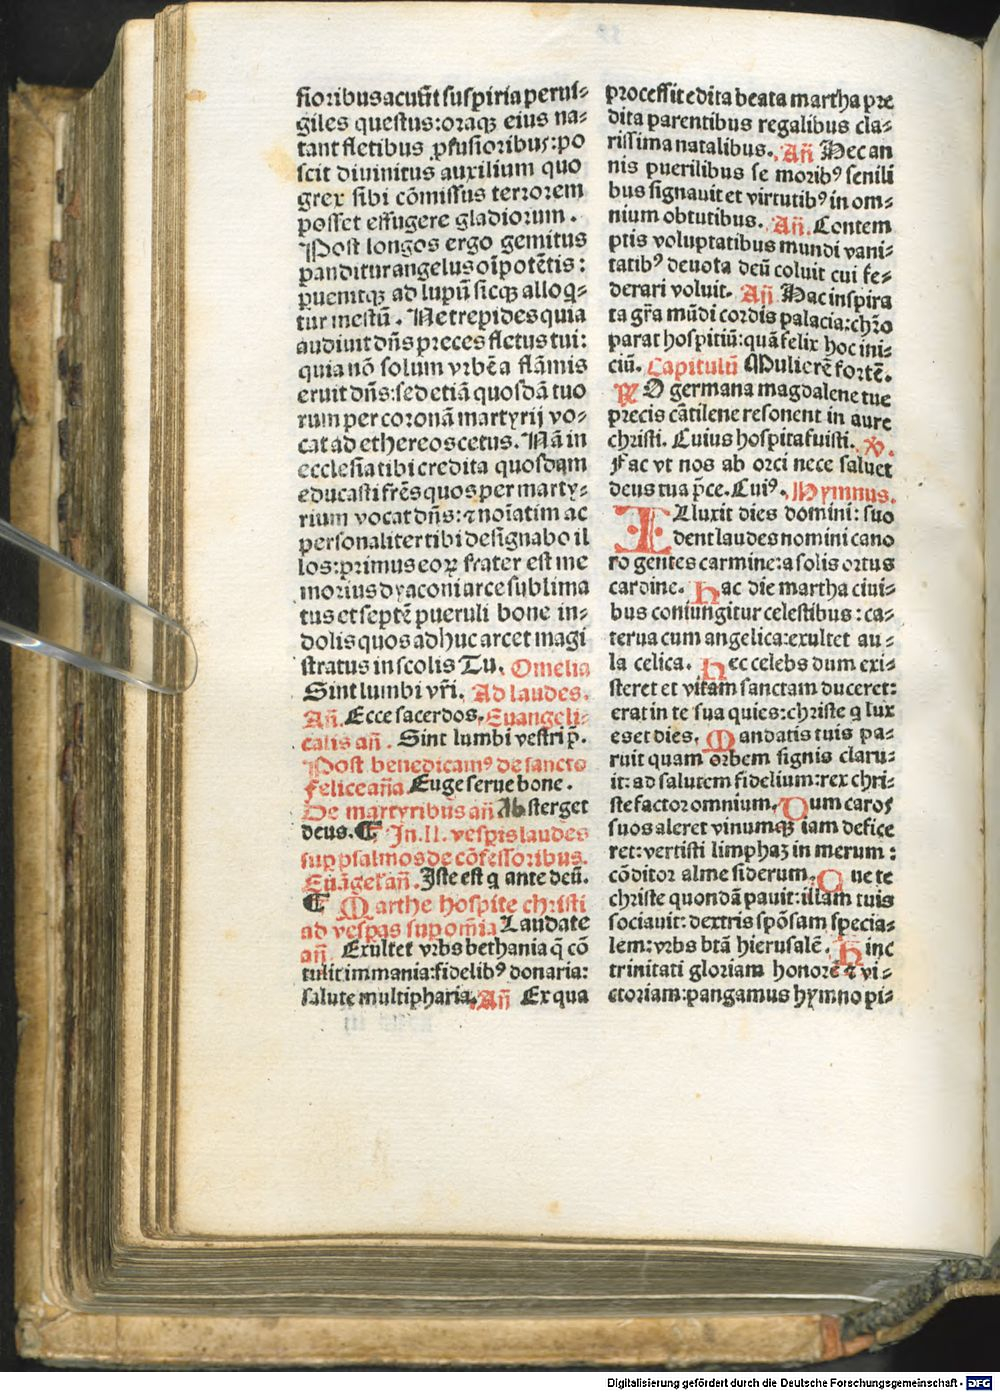 fioribus acuūt suspiria perui⸗
giles questus:oraqꝫ eius na⸗
tant fletibus ꝓfusioribus:po
scit diuinitus auxilium quo
grex sibi cōmissus terrorem
posset effugere gladiorum.
Post longos ergo gemitus
panditur angelus oīpotētis:
ꝑuenitqꝫ ad lupū sicqꝫ alloq̄⸗
tur mestū. Ne trepides quia
audiuit dn̄s preces fletus tui:
quia nō solum vrbē a flāmis
eruit dn̄s:sed etiā quosdā tuo
rum per coronā martyrij vo⸗
cat ad ethereos cetus. Nā in
ecclesia tibi credita quosdam
educasti fr̄es quos per marty⸗
rium vocat dn̄s:⁊ noīatim ac
personaliter tibi designabo il
los:primus eoꝝ frater est me
morius dyaconi arce sublima
tus et septē pueruli bone in⸗
dolis quos adhuc arcet magi
stratus in scolis Tu. Omelia
Sint lumbi vr̄i. Ad laudes.
Añ. Ecce sacerdos. Euangeli⸗
calis añ. Sint lumbi vestri p̄.
Post benedicamꝰ de sancto
felice aña Euge serue bone.
De martyribus añ Absterget
deus. ¶ In.II. vesp̄is laudes
sup psalmos de cōfessoribus.
Euāgel' añ. Iste est q ante deū.
¶ Marthe hospite christi
ad vesp̄as sup om̄ia Laudate
añ. Exultet vrbs bethania q̄ cō
tulit immania:fidelibꝰ donaria:
salute multipharia. Añ Ex qua
processit edita beata martha pre
dita parentibus regalibus cla⸗
rissima natalibus. Añ Hec an
nis puerilibus se moribꝰ senili
bus signauit et virtutibꝰ in om⸗
nium obtutibus. Añ. Contem
ptis voluptatibus mundi vani⸗
tatibꝰ deuota deū coluit cui fe⸗
derari voluit. Añ Hac inspira
ta gr̄a mūdi cordis palacia:chr̄o
parat hospitiū:quā felix hoc ini⸗
ciū. Capitulū Mulierē fortē.
℞ O germana magdalene tue
precis cātilene resonent in aure
christi. Cuius hospita fuisti. ℣.
Fac vt nos ab orci nece saluet
deus tua p̄ce. Cuiꝰ. Hymnus.
Illuxit dies domini: suo
dent laudes nomini cano
ro gentes carmine:a solis ortus
cardine. Hac die martha ciui⸗
bus coniungitur celestibus: ca⸗
terua cum angelica:exultet au⸗
la celica. Hec celebs dum exi⸗
steret et vitam sanctam duceret:
erat in te sua quies:christe q lux
es et dies. Mandatis tuis pa⸗
ruit quam orbem signis claru⸗
it:ad salutem fidelium:rex chri⸗
ste factor omnium. Dum caros
suos aleret vinumqꝫ iam defice
ret:vertisti limphaꝫ in merum:
cōditor alme siderum. Que te
christe quondā pauit:illam tuis
sociauit:dextris spōsam specia⸗
lem:vrbs btā hierusalē. Hinc
trinitati gloriam honorē ⁊ vi⸗
ctoriam:pangamus hymno pi⸗
Digitalisierung gefördert durch die Deutsche Forschungsgemeinschaft - DFG